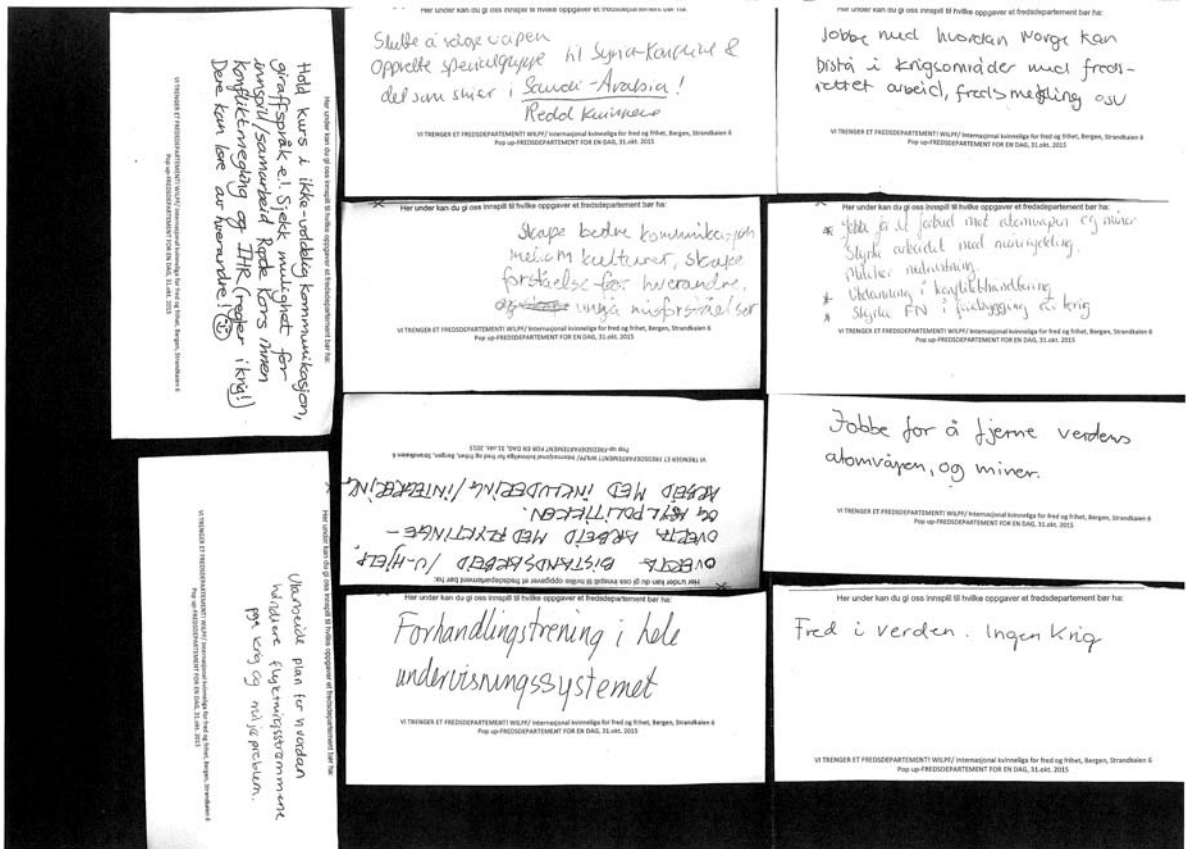 Her under kan du gi oss innspill til hvilke oppgaver et fredsdepartement bør ha:
Hold kurs i ikke-voldelig kommunikasjon,
giraffspråk e.l. Sjekk mulighet for
innspill/samarbeid Røde Kors innen
konfliktmegling og IHR (regler i krig!)
Dere kan lære av hverandre!
VI TRENGER ET FREDSDEPARTEMENT! WILPF/ Internasjonal kvinneliga for fred og frihet, Bergen, Strandkaien 6
Pop up-FREDSDEPARTEMENT FOR EN DAG, 31.okt. 2015
Her under kan du gi oss innspill til hvilke oppgaver et fredsdepartement bør ha:
Utarbeide plan for hvordan
håndtere flyktningsstrømmene
pga krig og miljøproblem.
VI TRENGER ET FREDSDEPARTEMENT! WILPF/ Internasjonal kvinneliga for fred og frihet, Bergen, Strandkaien 6
Pop up-FREDSDEPARTEMENT FOR EN DAG, 31.okt. 2015
Her under kan du gi oss innspill til hvilke oppgaver et fredsdepartement bør ha:
Slutte å selge våpen
Opprette spesialgruppe til Syria-konflikt &
det som skjer i Saudi-Arabia!
Redd kvinnene
VI TRENGER ET FREDSDEPARTEMENT! WILPF/ Internasjonal kvinneliga for fred og frihet, Bergen, Strandkaien 6
Pop up-FREDSDEPARTEMENT FOR EN DAG, 31.okt. 2015
Her under kan du gi oss innspill til hvilke oppgaver et fredsdepartement bør ha:
Skape bedre kommunikasjon
mellom kulturer, skape
forståelse for hverandre,
unngå misforståelser
VI TRENGER ET FREDSDEPARTEMENT! WILPF/ Internasjonal kvinneliga for fred og frihet, Bergen, Strandkaien 6
Pop up-FREDSDEPARTEMENT FOR EN DAG, 31.okt. 2015
Her under kan du gi oss innspill til hvilke oppgaver et fredsdepartement bør ha:
OVERTA BISTANDSARBEID /U-HJELP.
OVERTA ARBEID MED FLYKTNINGE-
OG ASYLPOLITIKKEN.
ARBEID MED INKLUDERING/INTEGRERING
VI TRENGER ET FREDSDEPARTEMENT! WILPF/ Internasjonal kvinneliga for fred og frihet, Bergen, Strandkaien 6
Pop up-FREDSDEPARTEMENT FOR EN DAG, 31.okt. 2015
Her under kan du gi oss innspill til hvilke oppgaver et fredsdepartement bør ha:
Forhandlingstrening i hele
undervisningssystemet
VI TRENGER ET FREDSDEPARTEMENT! WILPF/ Internasjonal kvinneliga for fred og frihet, Bergen, Strandkaien 6
Pop up-FREDSDEPARTEMENT FOR EN DAG, 31.okt. 2015
Her under kan du gi oss innspill til hvilke oppgaver et fredsdepartement bør ha:
Jobbe med hvordan Norge kan
bistå i krigsområder med freds-
rettet arbeid, fredsmegling osv
VI TRENGER ET FREDSDEPARTEMENT! WILPF/ Internasjonal kvinneliga for fred og frihet, Bergen, Strandkaien 6
Pop up-FREDSDEPARTEMENT FOR EN DAG, 31.okt. 2015
Her under kan du gi oss innspill til hvilke oppgaver et fredsdepartement bør ha:
* Jobbe for et forbud mot atomvapen og miner
Styrke arbeidet med minerydding.
nedrustning.
* Utdanning i konflikthåndtering
* Styrke FN i forebygging av krig
VI TRENGER ET FREDSDEPARTEMENT! WILPF/ Internasjonal kvinneliga for fred og frihet, Bergen, Strandkaien 6
Pop up-FREDSDEPARTEMENT FOR EN DAG, 31.okt. 2015
Jobbe for å fjerne verdens
atomvåpen, og miner.
VI TRENGER ET FREDSDEPARTEMENT! WILPF/ Internasjonal kvinneliga for fred og frihet, Bergen, Strandkaien 6
Pop up-FREDSDEPARTEMENT FOR EN DAG, 31.okt. 2015
Her under kan du gi oss innspill til hvilke oppgaver et fredsdepartement bør ha:
Fred i verden. Ingen Krig
VI TRENGER ET FREDSDEPARTEMENT! WILPF/ Internasjonal kvinneliga for fred og frihet, Bergen, Strandkaien 6
Pop up-FREDSDEPARTEMENT FOR EN DAG, 31.okt. 2015